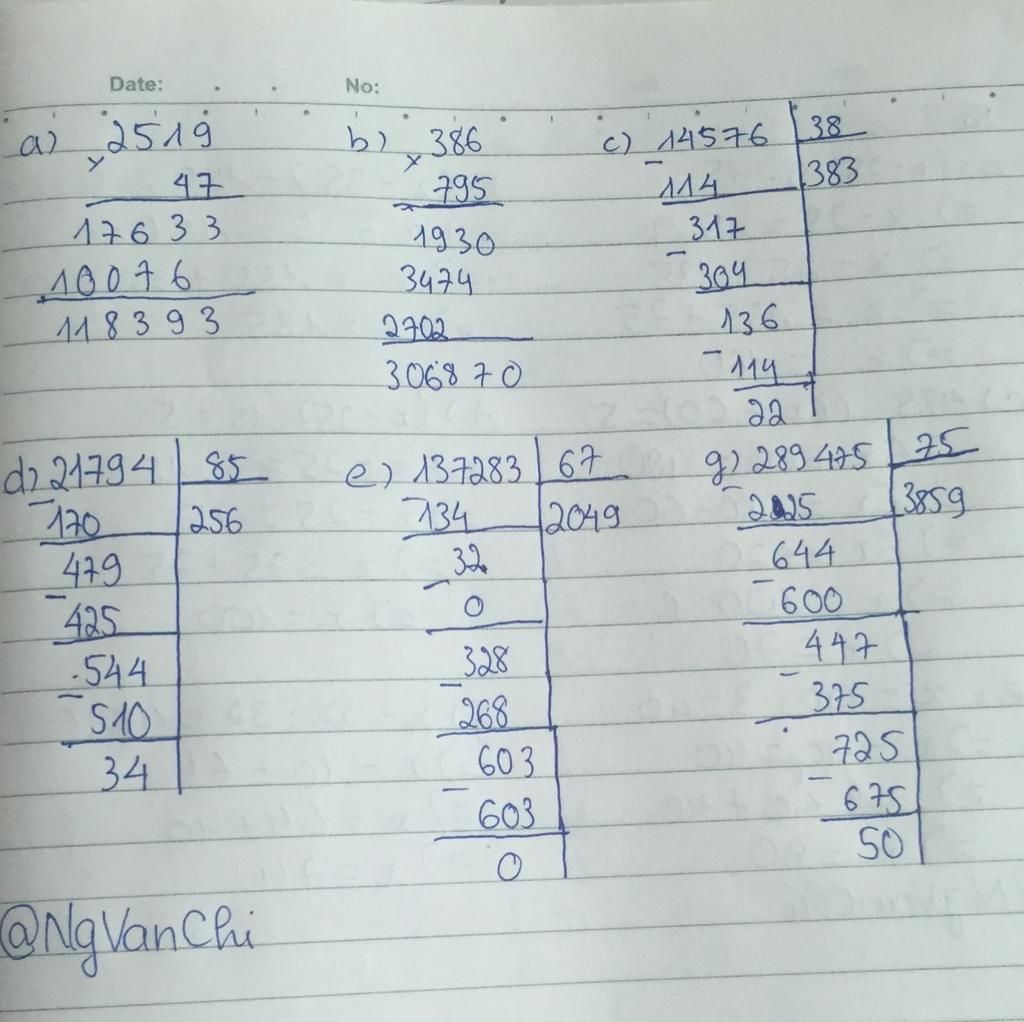 Date: . . No:
a) × 2519
47
17633
10076
118393
b) × 386
795
1930
3474
2702
306870
c) - 14576 | 38
114 | 383
317
- 304
136
- 114
22
d) 21794 | 85
- 170 | 256
479
- 425
544
- 510
34
e) 137283 | 67
- 134 | 2049
32
- 0
328
- 268
603
- 603
0
g) 289475 | 75
- 225 | 3859
644
- 600
447
- 375
725
- 675
50
@NgVanChi